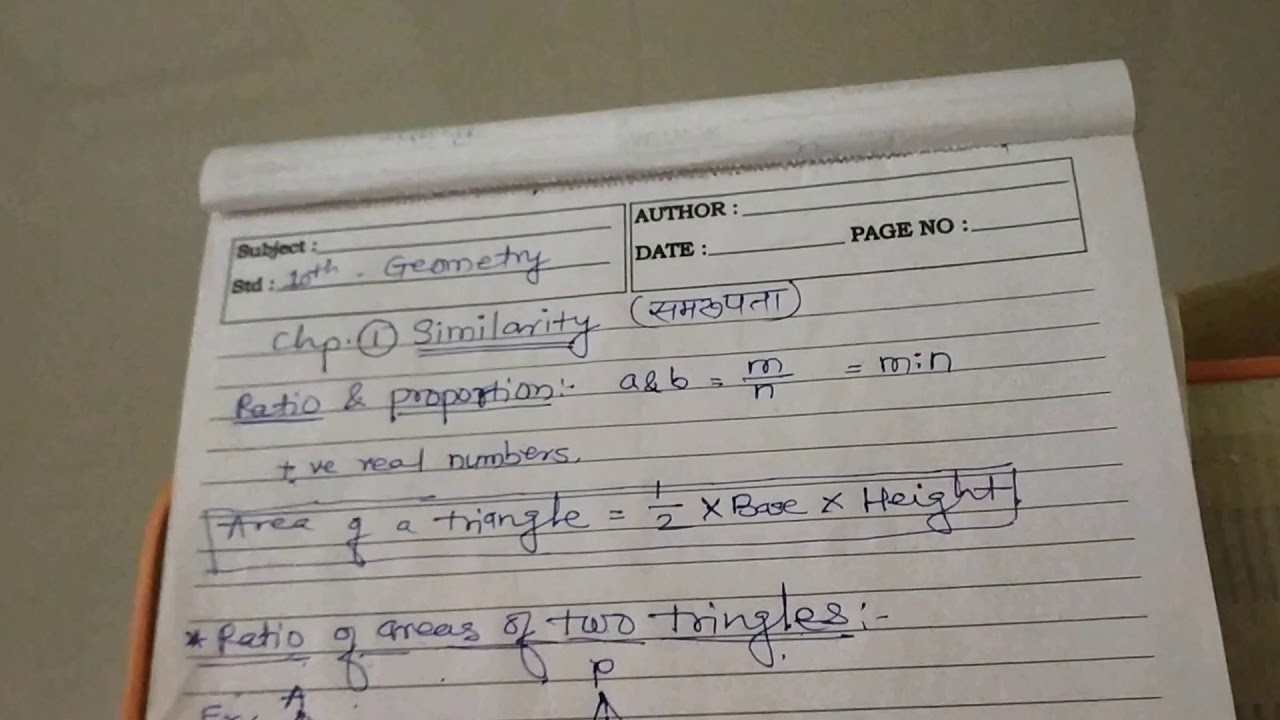 Subject :
Std : 10th - Geometry
AUTHOR :
DATE : PAGE NO :
Chp. ① Similarity (समरुपता)
Ratio & proportion :- a & b = m/n = m:n
+ve real numbers.
Area of a triangle = 1/2 × Base × Height
* Ratio of areas of two tringles :-
Ex. A P